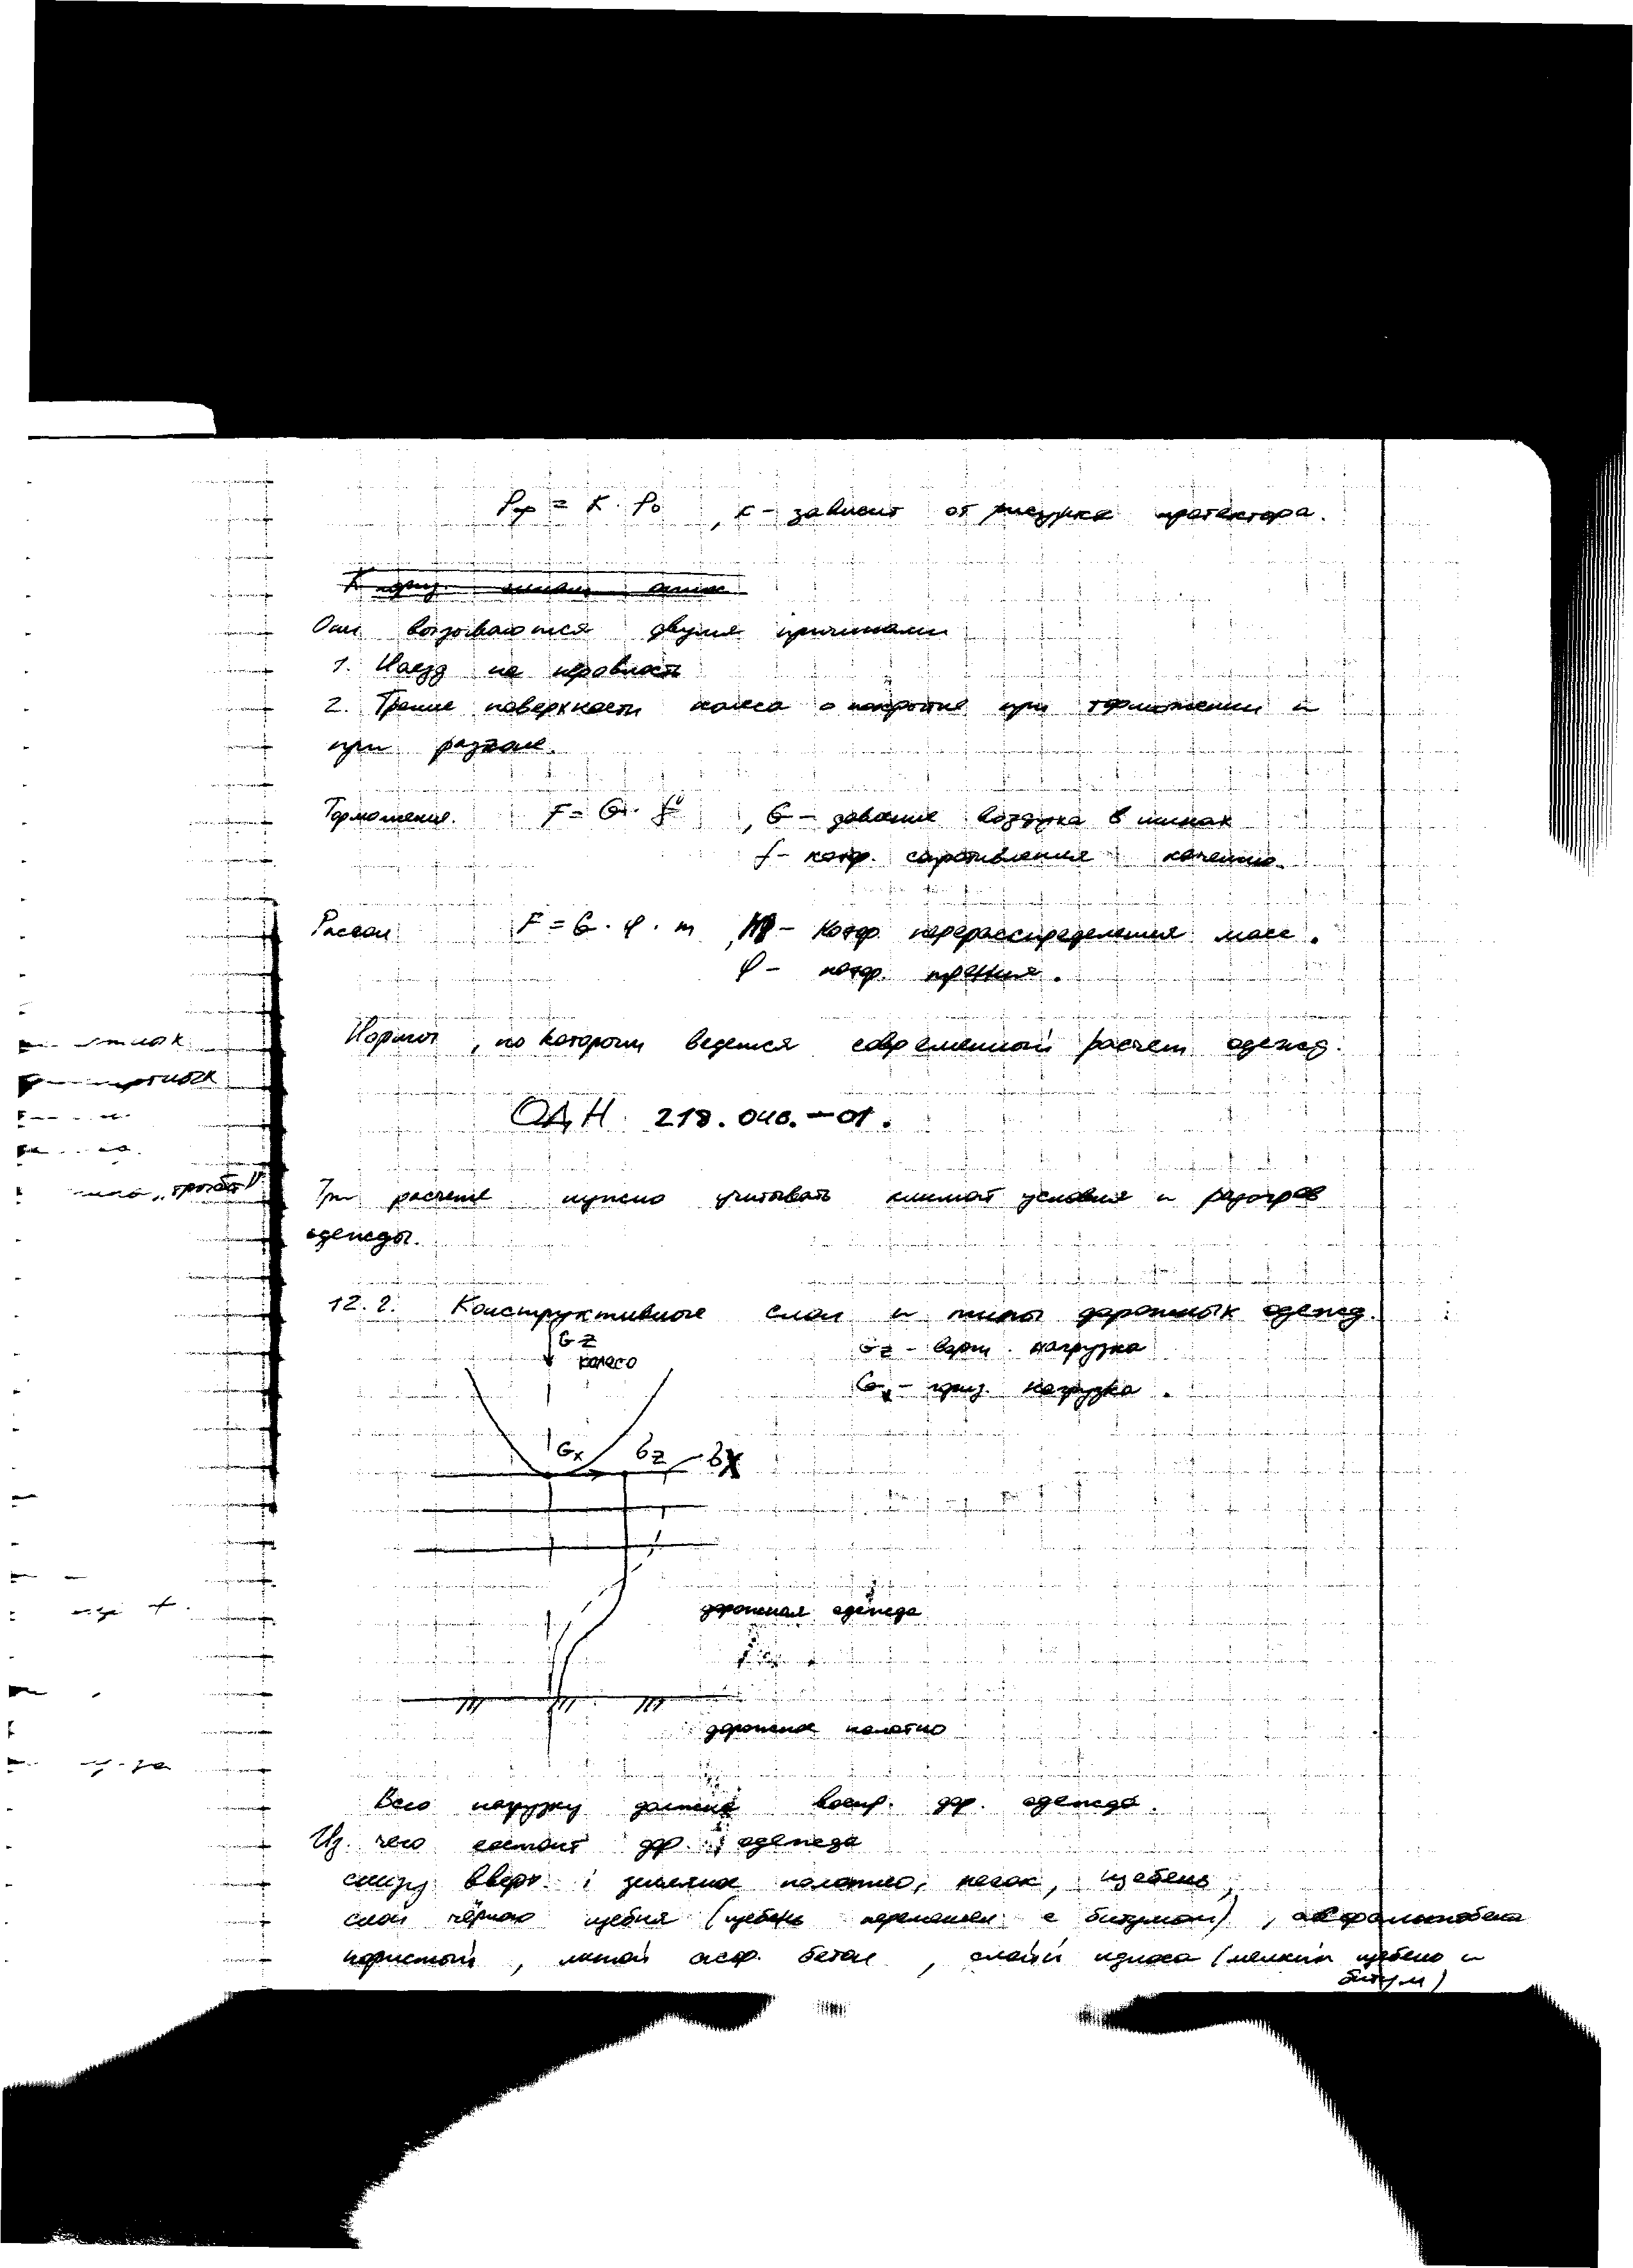 Pср = К · P₀ , К – зависит от рисунка протектора.
Они вызываются двумя причинами
1. Наезд на неровность
2. Трение поверхности колеса о покрытие при торможении и
при разгоне.
Торможение. F = G · f , G – давление воздуха в шинах
f – коэф. сопротивления качению.
Разгон F = G · φ · m , m – Коэф. перераспределения масс.
φ – коэф. трения.
Нормы, по которым ведется современный расчет одежд.
ОДН 218.046.–01.
При расчете нужно учитывать климат условия и разогрев
одежды.
12.2. Конструктивные слои и типы дорожных одежд.
Gz
колесо
Gz – верт. нагрузка
Gx – гориз. нагрузка.
Gx бz бx
дорожная одежда
дорожное полотно
Всю нагрузку должна воспр. дор. одежда.
Из чего состоит дор. одежда
снизу вверх: земляное полотно, песок, щебень,
слой чёрного щебня (щебень перемешан с битумом), асфальтобетон
пористый, литой асф. бетон, слой износа (мелкий щебень и
битум)